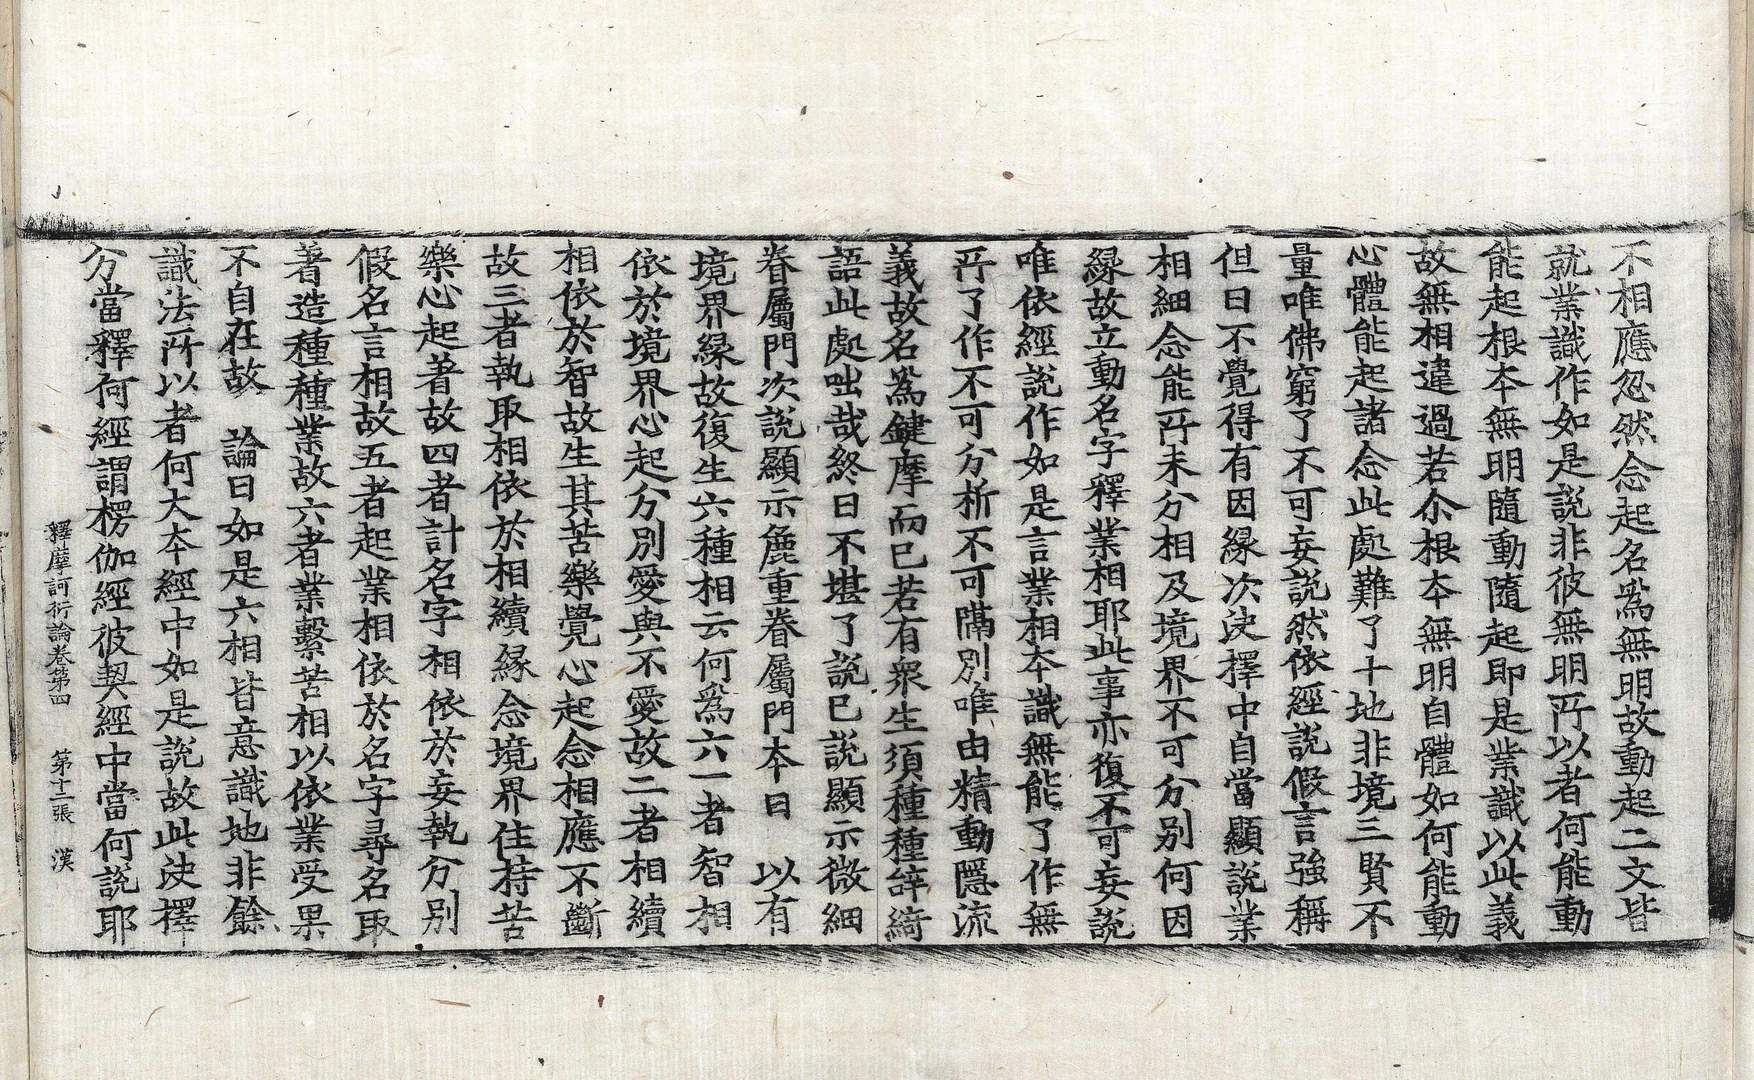 不相應忽然念起名爲無明故動起二文皆
就業識作如是說非彼無明所以者何能動
能起根本無明隨動隨起即是業識以此義
故無相違過若尒根本無明自體如何能動
心體能起諸念此處難了十地非境三賢不
量唯佛窮了不可妄說然依經說假言強稱
但曰不覺得有因緣次決擇中自當顯說業
相細念能所未分相及境界不可分别何因
緣故立動名字釋業相耶此事亦復不可妄說
唯依經說作如是言業相本識無能了作無
所了作不可分析不可隔別唯由精動隱流
義故名爲鍵摩而已若有衆生須種種辞綺
語此處咄哉終日不堪了說已說顯示微細
眷屬門次說顯示麁重眷屬門本曰　以有
境界緣故復生六種相云何爲六一者智相
依於境界心起分別愛與不愛故二者相續
相依於智故生其苦樂覺心起念相應不斷
故三者執取相依於相續緣念境界住持苦
樂心起著故四者計名字相依於妄執分別
假名言相故五者起業相依於名字尋名取
著造種種業故六者業繫苦相以依業受果
不自在故　論曰如是六相皆意識地非餘
識法所以者何大本經中如是說故此決擇
分當釋何經謂楞伽經彼契經中當何說耶
釋摩訶衍論卷第四　第十二張　漢